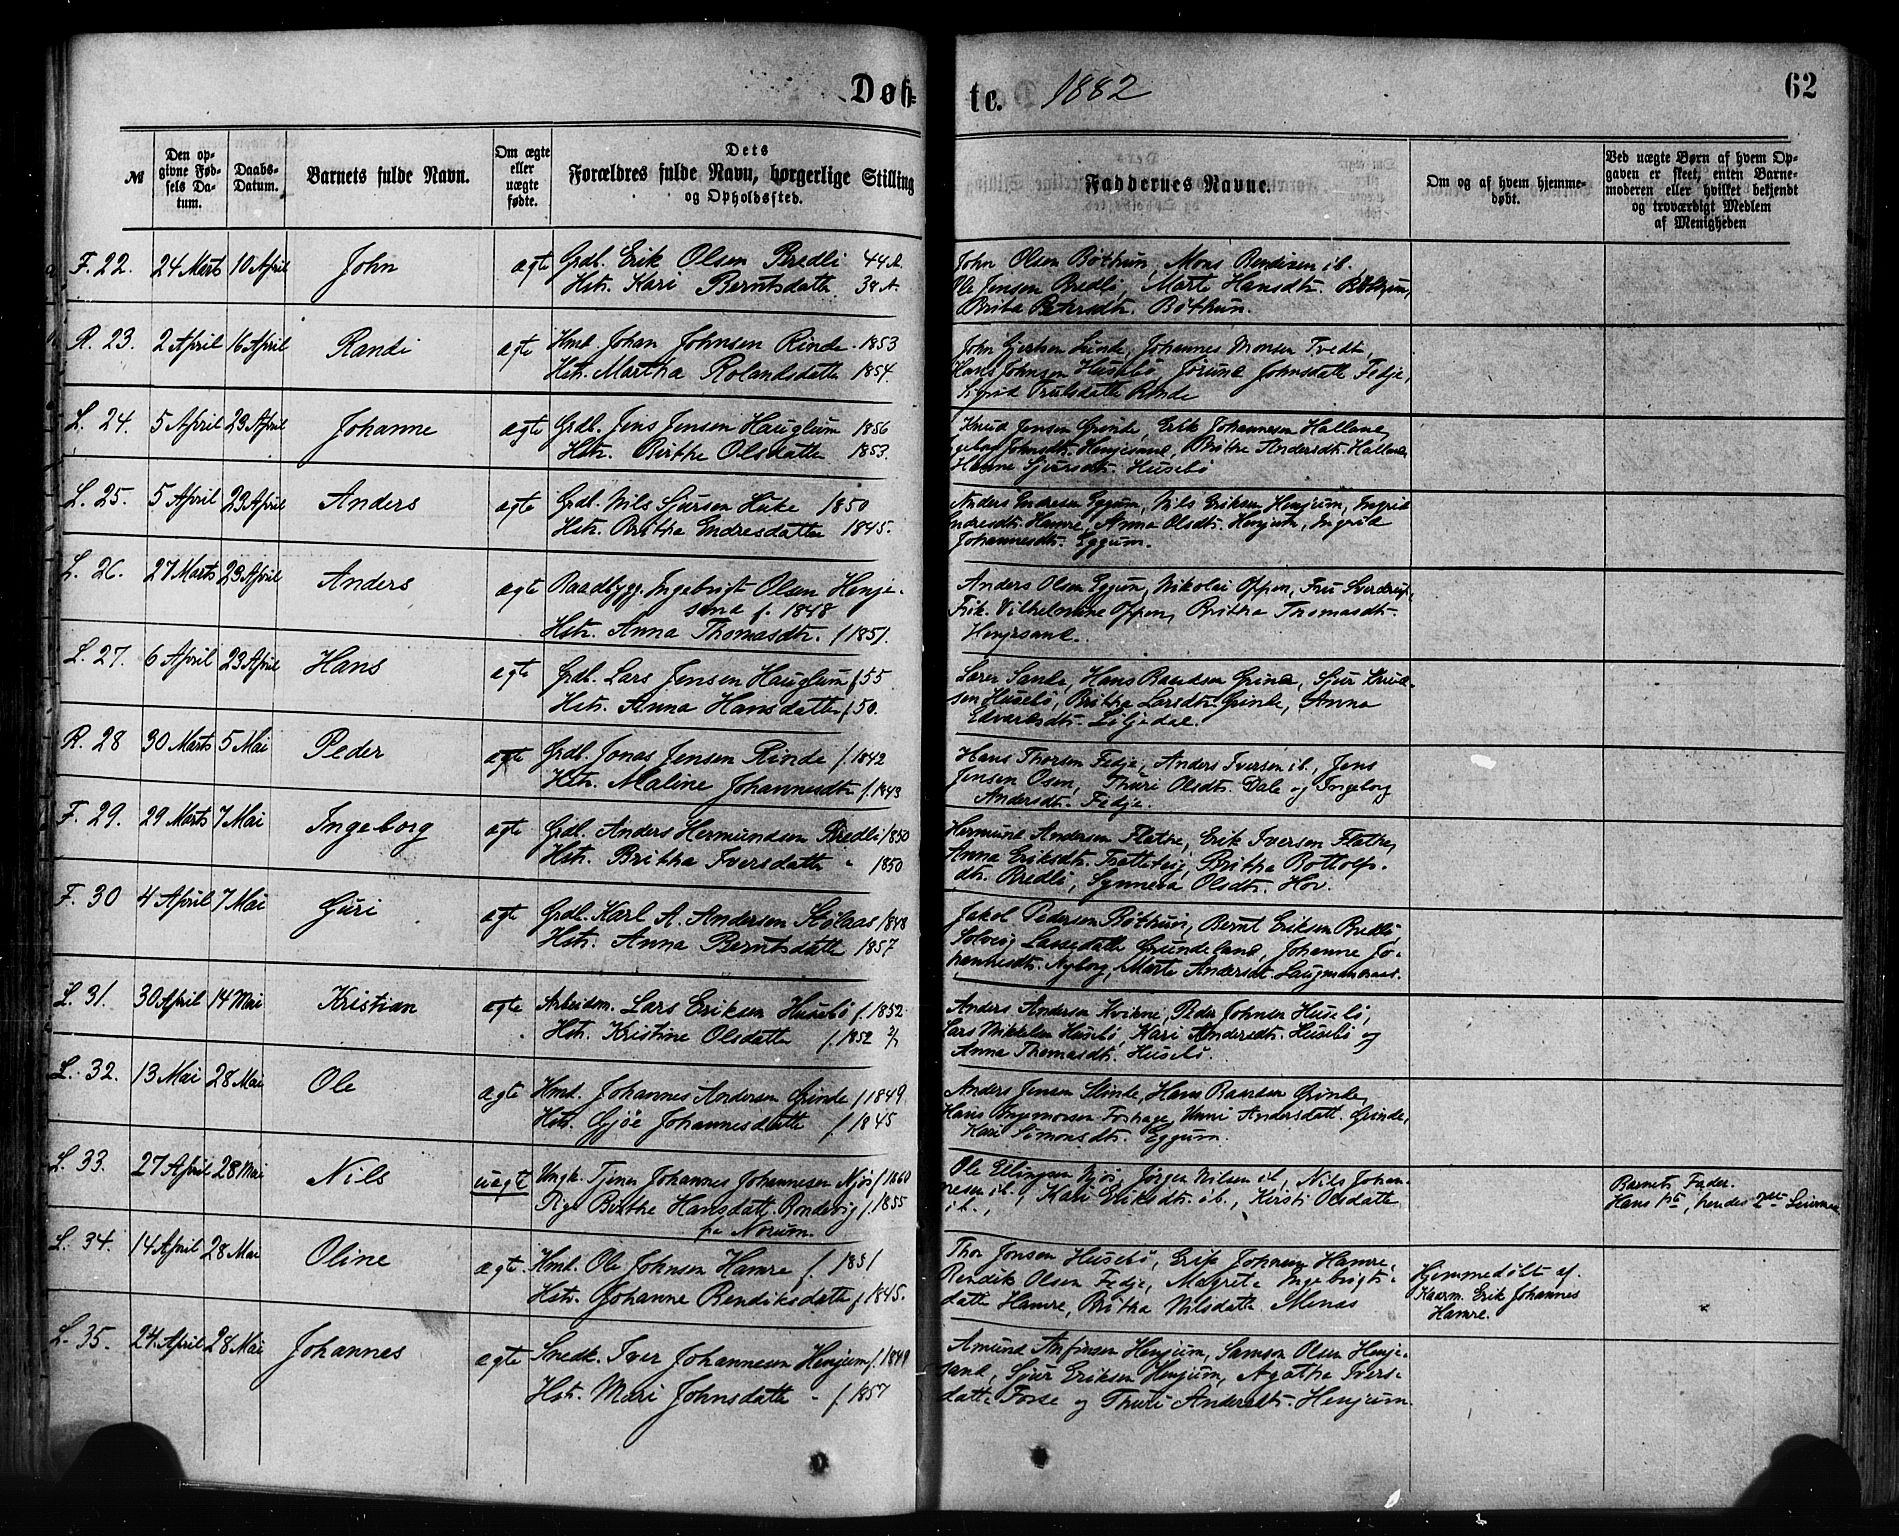 Døb-
te. 1882
62
№
Den op-
givne Fød-
sels Da-
tum.
Daabs-
Datum.
Barnets fulde Navn.
Om ægte
eller
uægte
fødte.
Dets
Forældres fulde Navn, borgerlige Stilling
og Opholdssted.
Faddernes Navne.
Om og af hvem hjemme-
døbt.
Ved uægte Børn af hvem Op-
gaven er skeet, enten Barne-
moderen eller hvilket bekjendt
og troværdigt Medlem
af Menigheden
F. 22. 24 Marts 10 April John ægte Grdb. Erik Olsen Bredli 44 A.
Hstr. Kari Berntsdatter 38 A.
John Olsen Bøthun, Mons Bendixen ib.
Ole Jensen Bredli, Marte Hansdtr. Bøthun,
Brita Dtr. Bøthun.
R. 23. 2 April 16 April Randi ægte Hmd. Johan Johnsen Rinde 1853
Hstr. Martha Rolandsdatter 1854.
John Gjertsen Lunde, Johannes Monsen Tvedt,
Hans Johnsen Husebø, Jørund Johnsdatter Fedje,
Sigrid Trulsdatter Rinde
L. 24. 5 April 23 April Johanne ægte Grdb. Jens Jensen Hauglum 1856
Hstr. Birthe Olsdatter 1853.
Knud Jensen Grinde, Erik Johannesen Halland,
Johnsdtr. Henjesand, Brithe Andersdtr. Halland
Hanne Sjursdtr. Husebø
L. 25. 5 April 23 April Anders ægte Grdb. Nils Sjursen Luke 1850
Hstr. Britha Endresdatter 1845.
Anders Endresen Eggum, Nils Eriksen Henjum, Ingrid
Endresdtr. Hamre, Anna Olsdtr. Henjum, Ingrid
Johannesdtr. Eggum.
L. 26. 27 Marts 23 April Anders ægte Baadbygg. Ingebrigt Olsen Henje-
sand f. 1848
Hstr. Anna Thomasdtr. f 1851.
Anders Olsen Eggum, Nikolai Oppen, Fru Sverdrup,
Frk. Vilhelmine Oppen, Britha Thomasdtr.
Henjesand.
L. 27. 6 April 23 April Hans ægte Grdb. Lars Jensen Hauglum f 55
Hstr. Anna Hansdatter f 50.
Lærer Sande, Hans Baardsen Grinde, Sjur Knud-
sen Husebø, Britha Larsdtr. Grinde, Anna
Edvardsdtr. Liljedal.
R. 28 30 Marts 5 Mai Peder ægte Grdb. Jonas Jensen Rinde f. 1842
Hstr. Maline Johannesdtr f. 1843
Hans Thorsen Fedje, Anders Iversen ib., Jens
Jensen Osen, Thuri Olsdtr. Dale og Ingeborg
Andersdtr. Fedje.
F. 29. 29 Marts 7 Mai Ingeborg ægte Grdb. Anders Hermundsen Bredli 1850
Hstr. Britha Iversdatter " 1850
Hermund Andersen Flatre, Erik Iversen Flatre,
Anna Eriksdtr. Tretteteig, Britha Bottolfs-
dtr. Bredli, Synneva Olsdtr. Hov.
F. 30 4 April 7 Mai Guri ægte Grdb. Karl A. Andersen Stølaas 1848
Hstr. Anna Berntsdatter 1857
Jakob Pedersen Bøthun, Bernt Eriksen Bredli
Solveig Lassedatter Grindeland, Johanne Jo-
hannesdtr. Nyborg, Marte Andersdt. Laugmandnæs.
L. 31. 30 April 14 Mai Kristian ægte Arbeidsm. Lars Eriksen Husebø f. 1852
Hstr. Kristine Olsdatter f. 1852
Anders Andersen Kvikne, Peder Johnsen Husebø,
Lars Mikkelsen Husebø, Kari Andersdtr. Husebø og
Anna Thomasdtr. Husebø.
L. 32. 13 Mai 28 Mai Ole ægte Hmd. Johannes Andersen Grinde f 1849
Hstr. Gjøe Johannesdatter f. 1845
Anders Jensen Slinde, Hans Baardsen Grinde,
Hans Brynjnorsen Forhage, Unni Andersdatt. Grinde,
Kari Simonsdtr. Eggum.
L. 33. 27 April 28 Mai Nils uægte Ungk. Tjener Johannes Johannesen Njøs f 1860
Pige Birthe Hansdatt. Røndevig f. 1855
fra Norum.
Ole Ellingsen Njøs, Jørgen Nilsen ib, Nils Johan-
nesen ib., Kari Eriksdtr. ib., Kirsti Olsdatter
ib.,
Barnets Fader.
Hans 1ste, hendes 2det Leiermaal
L. 34. 14 April 28 Mai Oline ægte. Hmd. Ole Johnsen Hamre f. 1851
Hstr. Johanne Bendiksdatter f 1845.
Thor Jonsen Husebø, Erik Johnsen Hamre,
Bendik Olsen Fedje, Magrete Ingebrigts-
datter Hamre, Britha Nilsdatter Menæs
Hjemmedøbt af
Kaarm. Erik Johannes
Hamre.
L. 35. 24 April 28 Mai Johannes ægte Snedk. Iver Johannesen Henjum f. 1849
Hstr. Mari Johnsdatter - f. 1857
Amund Anfinsen Henjum, Samson Olsen Henje-
sand, Sjur Eriksen Henjum, Agatha Ivers-
datter Forse og Thuri Andersdtr. Henjum.